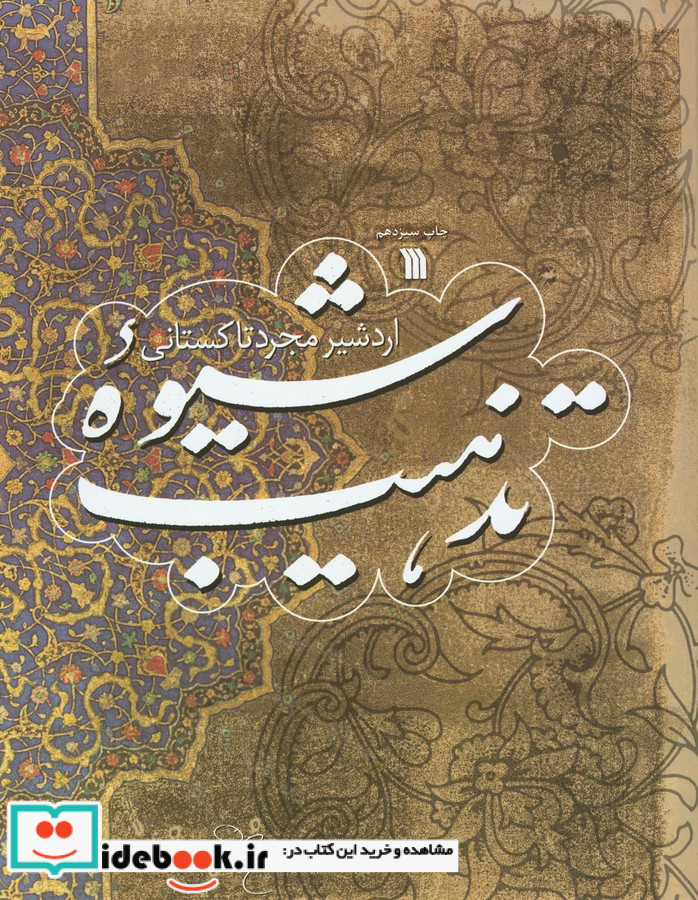 چاپ سیزدهم
اردشیر مجرد تاکستانی
شیوهٔ
تذهیب
مشاهده و خرید این کتاب در:
idebook.ir